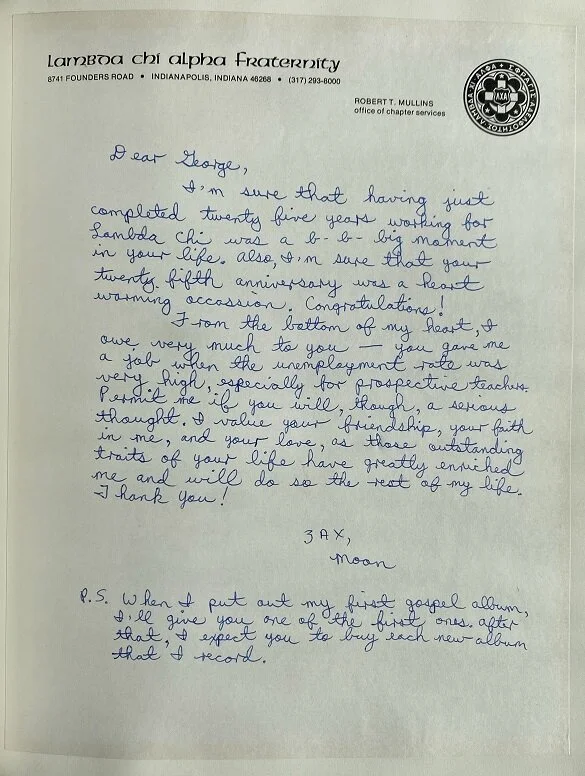 Lambda chi alpha Fraternity
8741 FOUNDERS ROAD • INDIANAPOLIS, INDIANA 46268 • (317) 293-8000
ROBERT T. MULLINS
office of chapter services
Dear George,
I'm sure that having just
completed twenty five years working for
Lambda Chi was a b- b- big moment
in your life. Also, I'm sure that your
twenty-fifth anniversary was a heart
warming occassion. Congratulations!
From the bottom of my heart, I
owe very much to you — you gave me
a job when the unemployment rate was
very high, especially for prospective teachers.
Permit me if you will, though, a serious
thought. I value your friendship, your faith
in me, and your love, as those outstanding
traits of your life have greatly enriched
me and will do so the rest of my life.
Thank you!
ZAX,
Moon
P.S. When I put out my first gospel album,
I'll give you one of the first ones. After
that, I expect you to buy each new album
that I record.